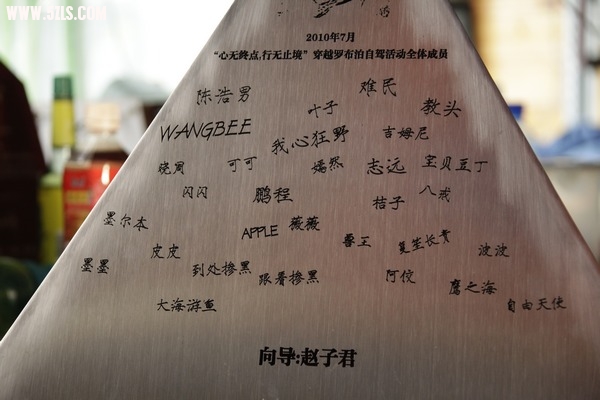 WWW.51LS.COM
2010年7月
“心无终点,行无止境”穿越罗布泊自驾活动全体成员
陈浩男 难民
叶子 教头
WANGBEE 我心狂野 吉姆尼
晓周 可可 嫣然 志远 宝贝豆丁
闪闪 鹏程 桔子 八戒
墨尔本 APPLE 薇薇
皮皮 兽王 复生长青 波波
墨墨 到处掺黑 跟着掺黑 阿佼 鹰之海
大海游鱼 自由天使
向导:赵子君